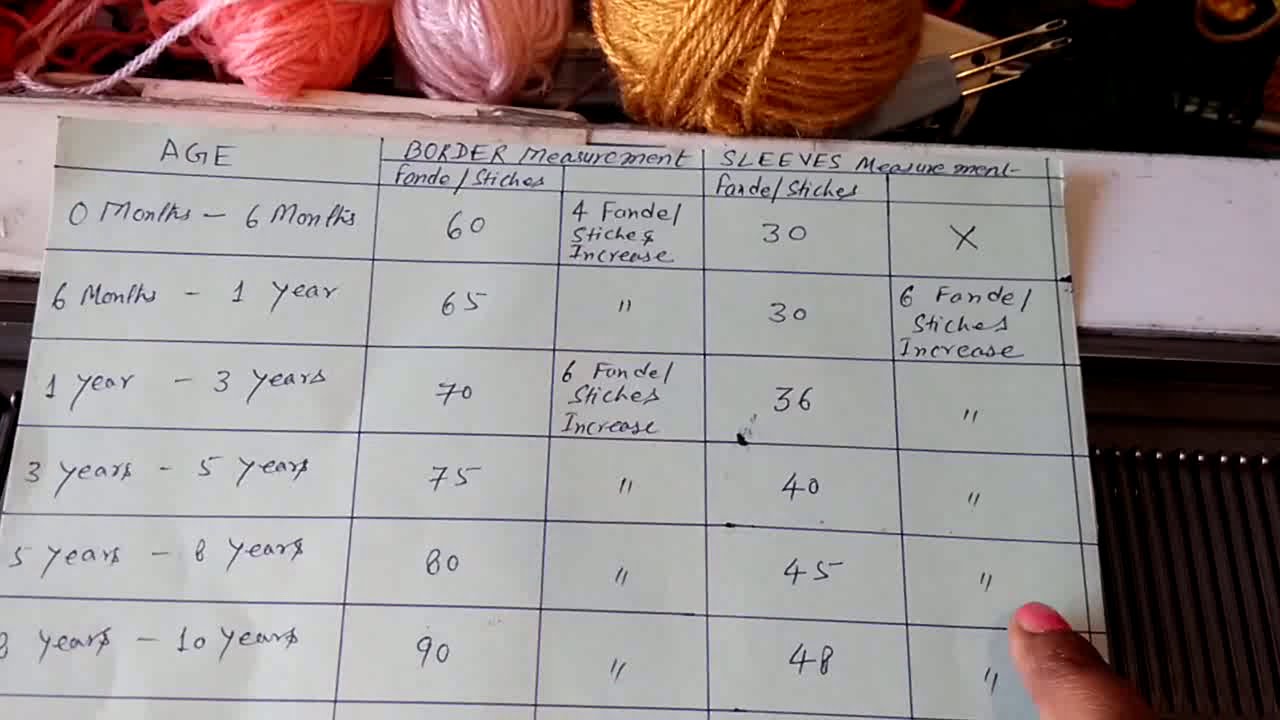 AGE BORDER Measurement SLEEVES Measurement
Fande/Stiches Fande/Stiches
0 Months - 6 Months 60 4 Fande/ Stiches Increase 30 X
6 Months - 1 year 65 " 30 6 Fande/ Stiches Increase
1 year - 3 years 70 6 Fande/ Stiches Increase 36 "
3 years - 5 years 75 " 40 "
5 years - 8 years 80 " 45 "
8 years - 10 years 90 " 48 "